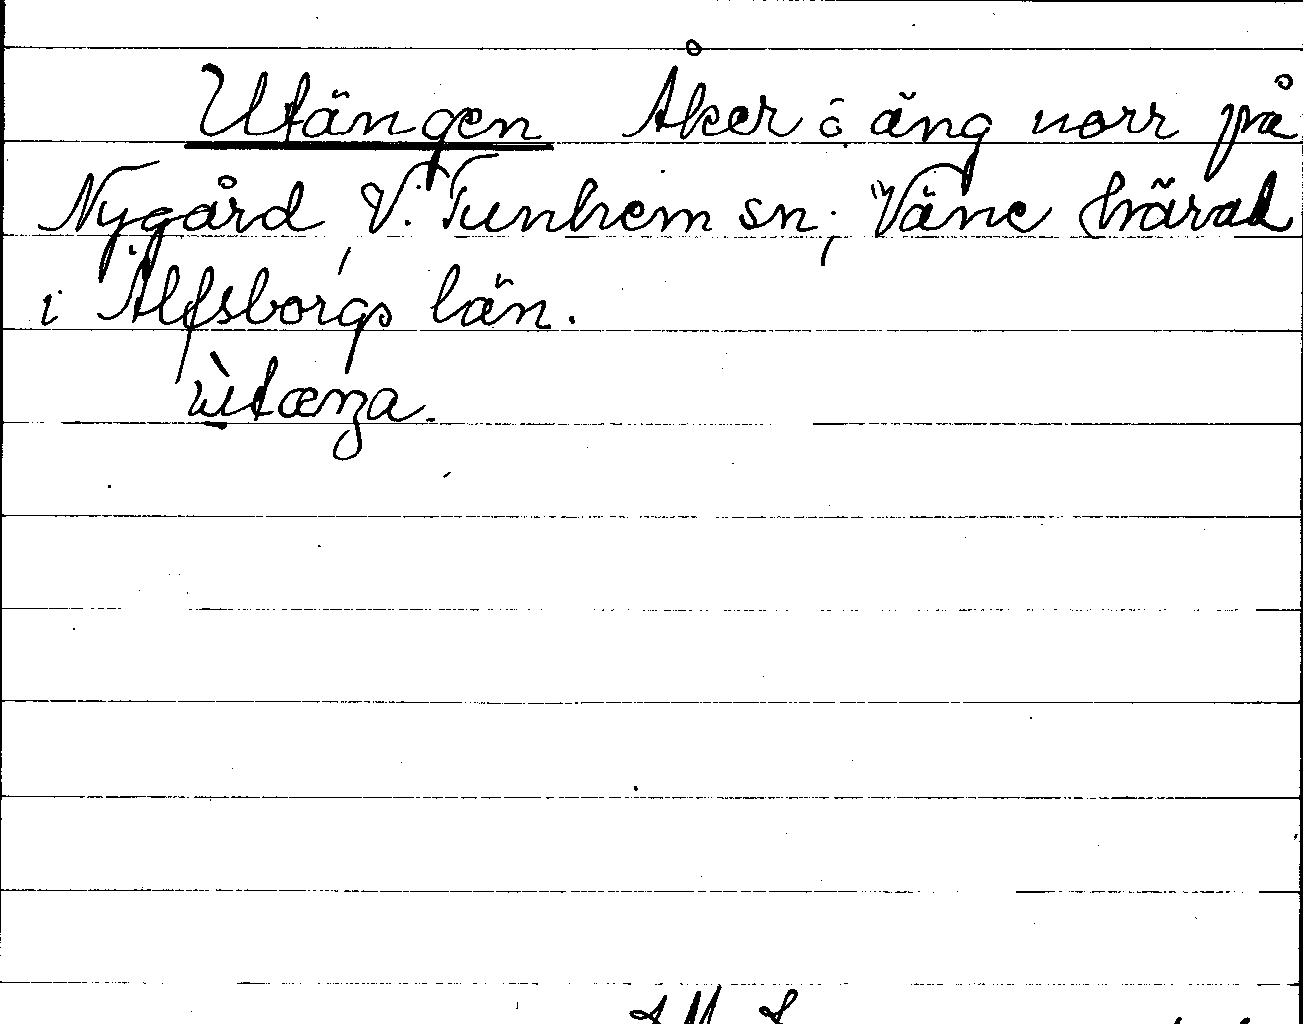 Utängen Åker ö äng norr på
Nygård, V. Tunhem sn, Väne härad
i Älfsborgs län.
ùtæŋa.